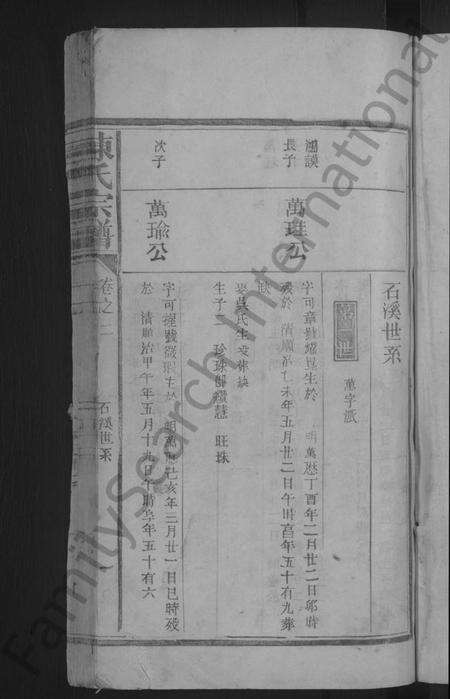 石溪世系
萬字派
鴻謨
長子
萬珄公
字可章號耀崑生於 明萬厯丁酉年二月廿二日卯時
歿於 清順治乙未年五月廿二日午時享年五十有九葬
缺
娶吳氏生歿葬缺
生子三 珍珠 旺珠
次子
萬瑜公
字可握號 生於 明萬厯己亥年三月廿一日巳時歿
於 清順治甲午年五月十九日午時享年五十有六
陳氏宗譜
卷之二
石溪世系
FamilySearch International